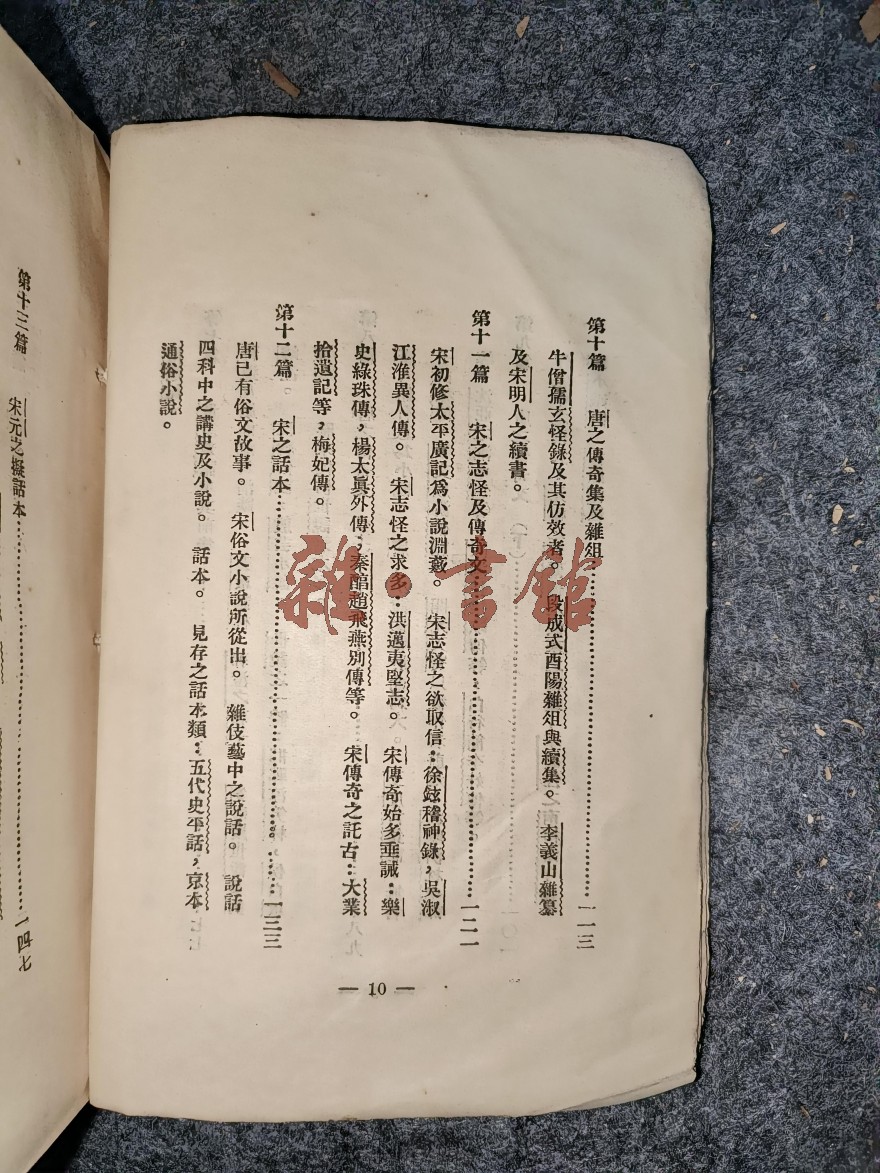 第十篇　唐之傳奇集及雜俎……一一三
牛僧孺玄怪錄及其仿效者。　段成式酉陽雜俎與續集。　李義山雜纂
及宋明人之續書。
第十一篇　宋之志怪及傳奇文……一二一
宋初修太平廣記爲小說淵藪。　宋志怪之欲取信：徐鉉稽神錄，吳淑
江淮異人傳。　宋志怪之求多：洪邁夷堅志。　宋傳奇始多垂誡：樂
史綠珠傳，楊太眞外傳，秦醕趙飛燕別傳等。　宋傳奇之託古：大業
拾遺記等，梅妃傳。
第十二篇　宋之話本……一三三
唐已有俗文故事。　宋俗文小說所從出。　雜伎藝中之說話。　說話
四科中之講史及小說。　話本。　見存之話本類：五代史平話，京本
通俗小說。
— 10 —
第十三篇　宋元之擬話本……一四七
雜·書館